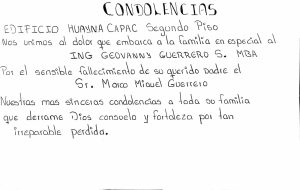 CONDOLENCIAS
EDIFICIO HUAYNA CAPAC Segundo Piso
Nos unimos al dolor que embarca a la familia en especial al
ING GEOVANNY GUERRERO S. MBA
Por el sensible fallecimiento de su querido padre el
Sr. Marco Miguel Guerrero
Nuestras mas sinceras condolencias a toda su familia
que derrame Dios consuelo y fortaleza por tan
irreparable perdida.